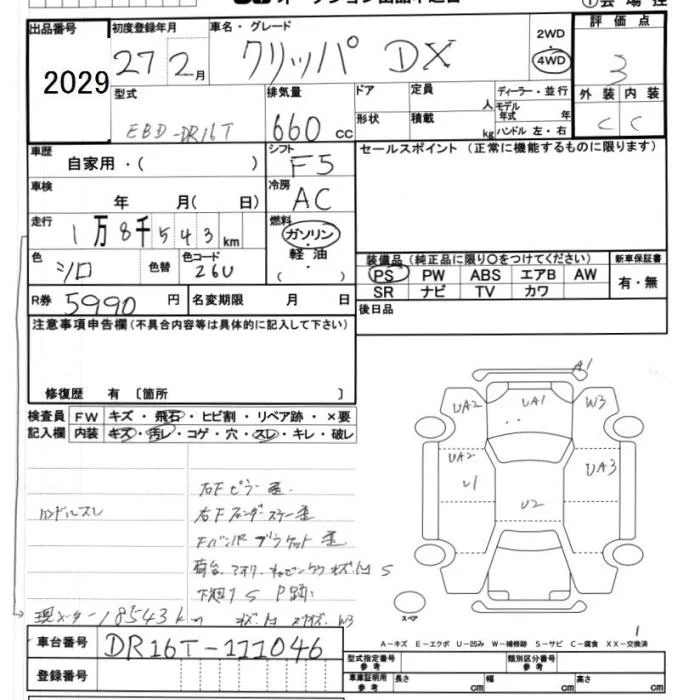 出品番号
2029
初度登録年月
27年2月
車名・グレード
クリッパ DX
2WD
4WD
評価点
3
型式
EBD-DR16T
排気量
660 cc
ドア
定員
人
ディーラー・並行
モデル年式 年
形状
積載
kg
ハンドル 左・右
外装 内装
C C
車歴
自家用・( )
シフト
F5
セールスポイント (正常に機能するものに限ります)
車検
年 月( 日)
冷房
AC
走行
1万8千543km
燃料
ガソリン
・
軽油
( )
色
シロ
色替
色コード
26U
装備品 (純正品に限り〇をつけてください)
新車保証書
PS PW ABS エアB AW
SR ナビ TV カワ
有・無
R券 5990 円
名変期限 月 日
後日品
注意事項申告欄(不具合内容等は具体的に記入して下さい)
修復歴 有 〔箇所 〕
検査員 FW キズ・飛石・ヒビ割・リペア跡・×要
記入欄 内装 キズ・汚レ・コゲ・穴・スレ・キレ・破レ
ハンドルスレ
右Fピラー歪
右Fフェンダーステー歪
Fバンパブラケット歪
下廻りS
現メーター18543km
A1
UA2 UA1 W3
UA2
U1
UA3
U2
スペア
1
A-キズ E-エクボ U-凹み W-補修跡 S-サビ C-腐食 XX-交換済
車台番号 DR16T-111046
登録番号
型式指定番号 参考
類別区分番号 参考
車庫証明用 参考
長さ cm 幅 cm 高さ cm